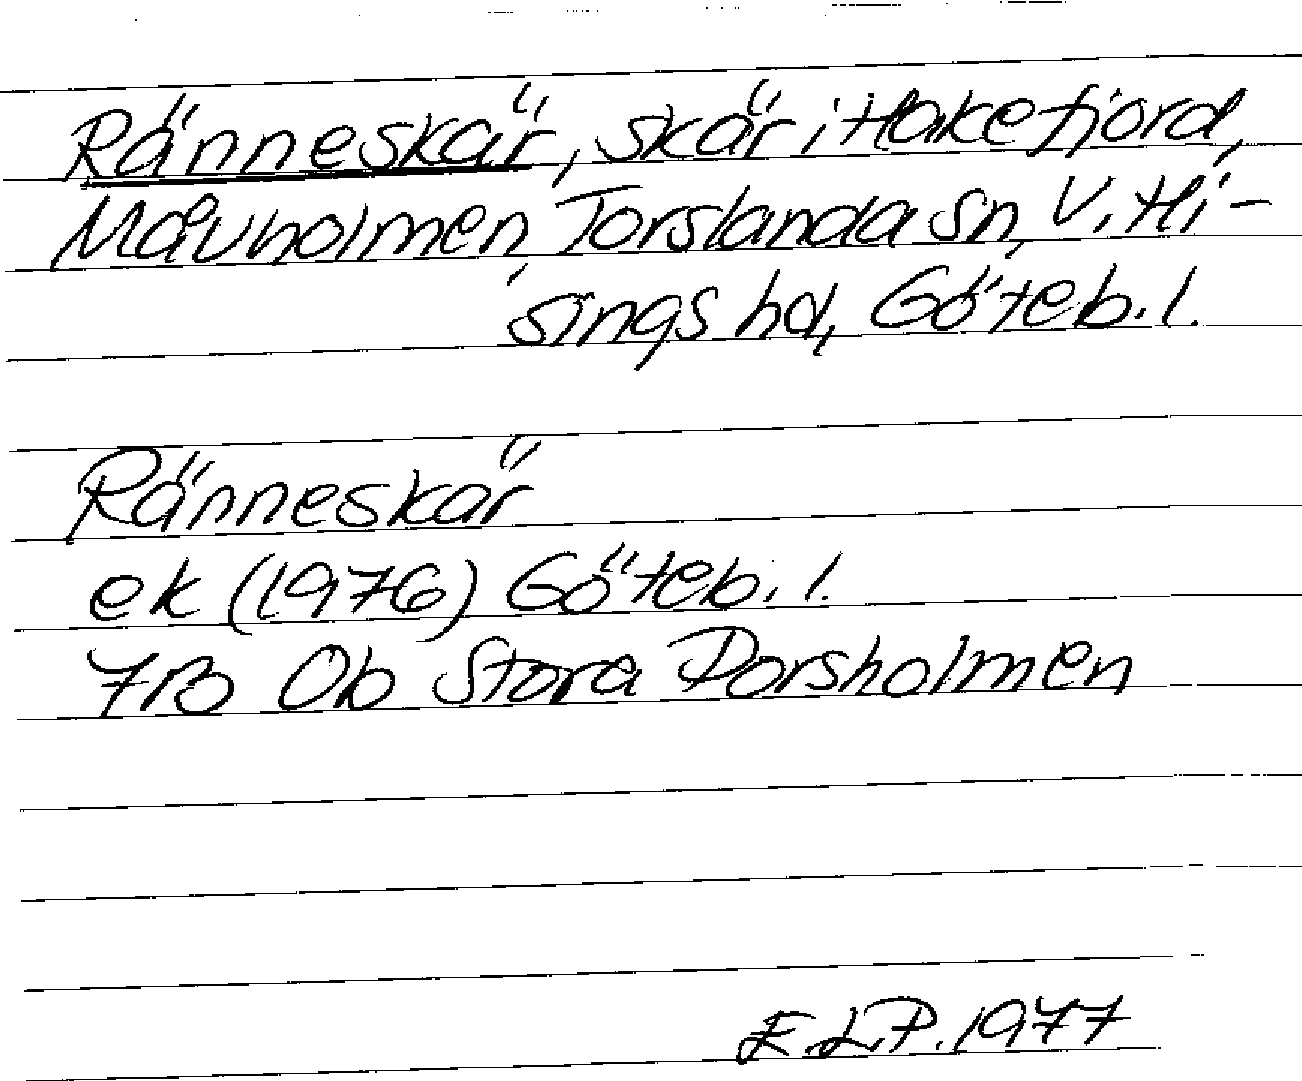 Ränneskär, skär i Hakefjord,
Måvholmen, Torslanda sn, V. Hi-
sings hd, Göteb. l.
Ränneskär
ek (1976) Göteb. l.
7B 0b Stora Porsholmen
E.L.P. 1977